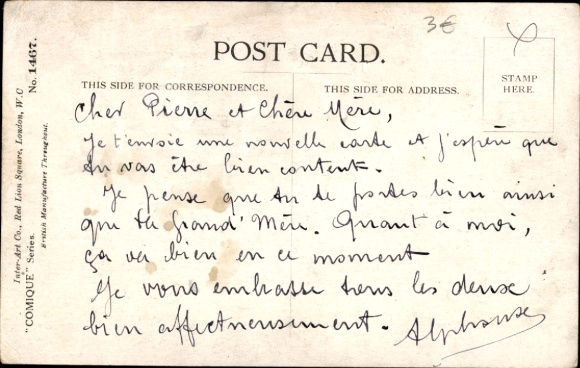 3€
POST CARD.
STAMP
HERE.
THIS SIDE FOR CORRESPONDENCE.
THIS SIDE FOR ADDRESS.
Cher Pierre et Chère Mère,
Je t'envoie une nouvelle carte et j'espère que
tu vas être bien content.
Je pense que tu te portes bien ainsi
que ta Grand' Mère. Quant à moi,
ça va bien en ce moment
Je vous embrasse tous les deux
bien affectueusement. Alphonse
Inter-Art Co., Red Lion Square, London, W.C
"COMIQUE" Series.
British Manufacture Throughout.
No. 1467.